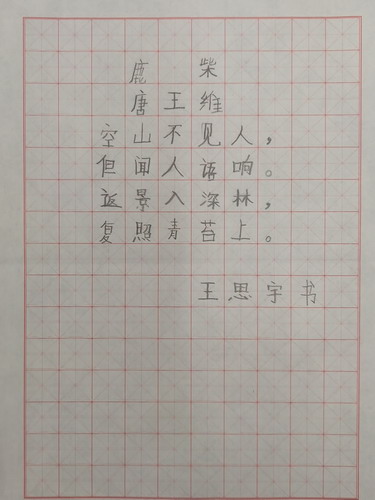 鹿柴
唐王维
空山不见人，
但闻人语响。
返景入深林，
复照青苔上。
王思宇书